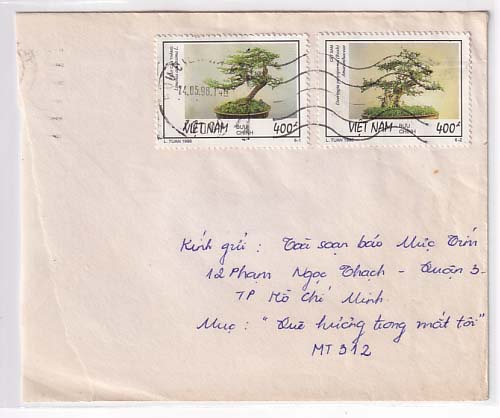 14.05.98
VIỆT NAM BƯU CHÍNH 400đ
L. TUAN 1998 6-1
VIỆT NAM BƯU CHÍNH 400đ
L. TUAN 1998 6-2
Kính gửi : Toà soạn báo Mực Tím
12 Phạm Ngọc Thạch - Quận 3 -
TP Hồ Chí Minh
Mục : "Quê hương trong mắt tôi"
MT 312